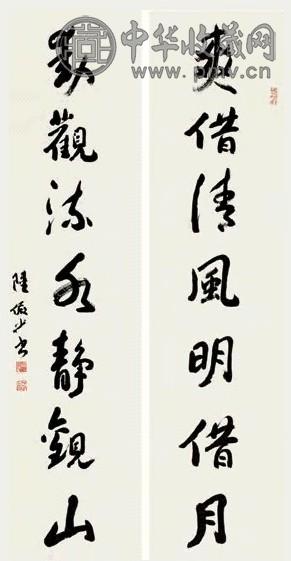 中华收藏网
爽借清風明借月
動觀流水静觀山
陸儼少書